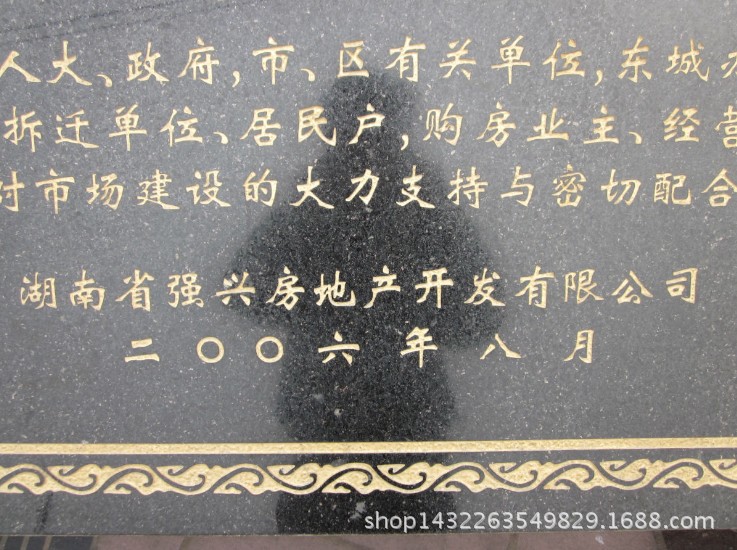 人大、政府,市、区有关单位,东城办
拆迁单位、居民户,购房业主、经营
对市场建设的大力支持与密切配合
湖南省强兴房地产开发有限公司
二〇〇六年八月
shop1432263549829.1688.com